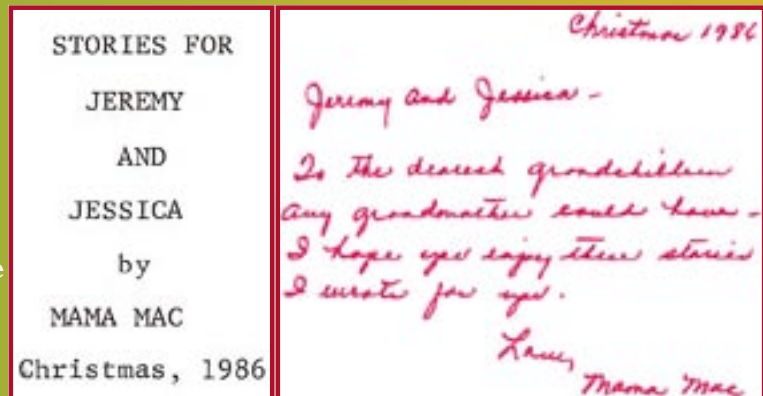 STORIES FOR
JEREMY
AND
JESSICA
by
MAMA MAC
Christmas, 1986
Christmas 1986
Jeremy and Jessica -
To the dearest grandchildren
any grandmother could have -
I hope you enjoy these stories
I wrote for you.
Love,
Mama Mac